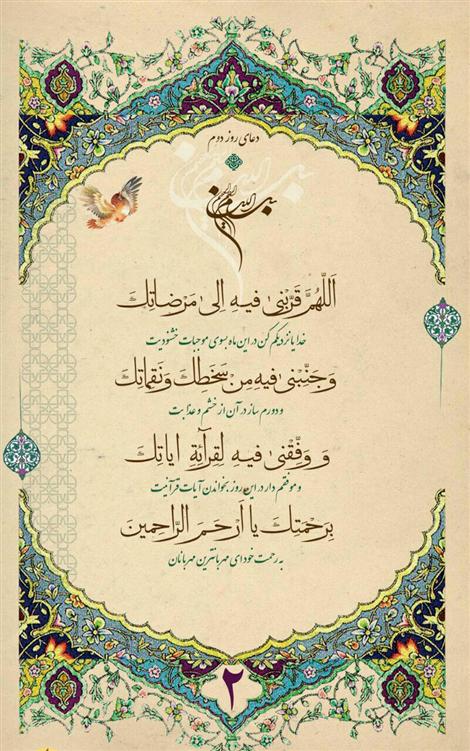 دعای روز دوم
بسم الله الرحمن الرحیم
اَللّهُمَّ قَرِّبْنی فیهِ اِلی مَرْضاتِكَ
خدایا نزدیکم کن در این ماه بسوی موجبات خشنودیت
وَ جَنِّبْنی فیهِ مِنْ سَخَطِكَ وَ نَقِماتِكَ
و دورم ساز در آن از خشم و عذابت
وَ وَفِّقْنی فیهِ لِقِرآئَةِ ایاتِكَ
و موفقم دار در این روز بخواندن آیات قرآنیت
بِرَحْمَتِكَ یا اَرْحَمَ الرّاحِمینَ
به رحمت خود ای مهربانترین مهربانان
۲